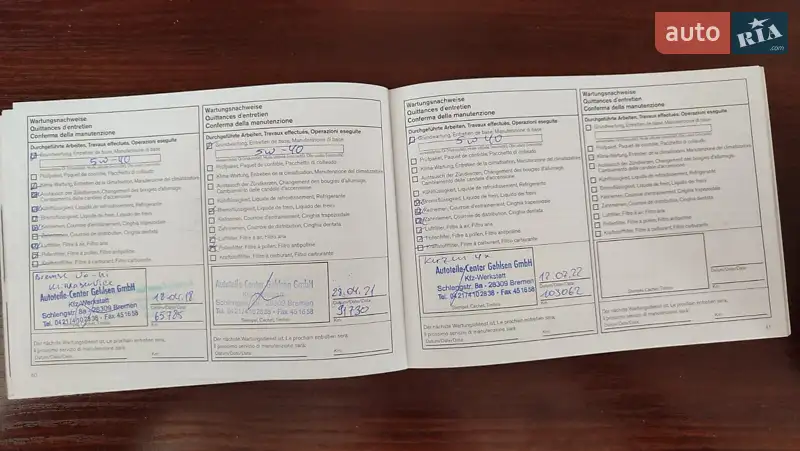 auto RIA .com
Wartungsnachweise
Quittances d'entretien
Conferma della manutenzione
Durchgeführte Arbeiten, Travaux effectués, Operazioni eseguite
Grundwartung, Entretien de base, Manutenzione di base
5W-40
Prüfpaket, Paquet de contrôle, Pacchetto di collaudo
Klima-Wartung, Entretien de la climatisation, Manutenzione del climatizzatore
Austausch der Zündkerzen, Changement des bougies d'allumage,
Cambiamento delle candele d'accensione
Kühlflüssigkeit, Liquide de refroidissement, Refrigerante
Bremsflüssigkeit, Liquide de frein, Liquido dei freni
Keilriemen, Courroie d'entraînement, Cinghia trapezoidale
Zahnriemen, Courroie de distribution, Cinghia dentata
Luftfilter, Filtre à air, Filtro aria
Pollenfilter, Filtre à pollen, Filtro antipolline
Kraftstofffilter, Filtre à carburant, Filtro carburante
Autoteile-Center Gehlsen GmbH
Kfz-Werkstatt
Schlengstr. 8a - 28309 Bremen
Tel. 04 21/4 10 28 38 - Fax 45 16 58
18.04.18
Datum/Date/Data
65785
Km
Der nächste Wartungsdienst ist, Le prochain entretien sera,
Il prossimo servizio di manutenzione sarà:
Datum/Date/Data
Km
40
Wartungsnachweise
Quittances d'entretien
Conferma della manutenzione
Durchgeführte Arbeiten, Travaux effectués, Operazioni eseguite
Grundwartung, Entretien de base, Manutenzione di base
5W-40
Prüfpaket, Paquet de contrôle, Pacchetto di collaudo
Klima-Wartung, Entretien de la climatisation, Manutenzione del climatizzatore
Austausch der Zündkerzen, Changement des bougies d'allumage,
Cambiamento delle candele d'accensione
Kühlflüssigkeit, Liquide de refroidissement, Refrigerante
Bremsflüssigkeit, Liquide de frein, Liquido dei freni
Keilriemen, Courroie d'entraînement, Cinghia trapezoidale
Zahnriemen, Courroie de distribution, Cinghia dentata
Luftfilter, Filtre à air, Filtro aria
Pollenfilter, Filtre à pollen, Filtro antipolline
Kraftstofffilter, Filtre à carburant, Filtro carburante
Autoteile-Center Gehlsen GmbH
Kfz-Werkstatt
Schlengstr. 8a - 28309 Bremen
Tel. 04 21/4 10 28 38 - Fax 45 16 58
Stempel, Cachet, Timbro
28.04.21
Datum/Date/Data
91730
Km
Der nächste Wartungsdienst ist, Le prochain entretien sera,
Il prossimo servizio di manutenzione sarà:
Datum/Date/Data
Km
Wartungsnachweise
Quittances d'entretien
Conferma della manutenzione
Durchgeführte Arbeiten, Travaux effectués, Operazioni eseguite
Grundwartung, Entretien de base, Manutenzione di base
5W-40
Prüfpaket, Paquet de contrôle, Pacchetto di collaudo
Klima-Wartung, Entretien de la climatisation, Manutenzione del climatizzatore
Austausch der Zündkerzen, Changement des bougies d'allumage,
Cambiamento delle candele d'accensione
Kühlflüssigkeit, Liquide de refroidissement, Refrigerante
Bremsflüssigkeit, Liquide de frein, Liquido dei freni
Keilriemen, Courroie d'entraînement, Cinghia trapezoidale
Zahnriemen, Courroie de distribution, Cinghia dentata
Luftfilter, Filtre à air, Filtro aria
Pollenfilter, Filtre à pollen, Filtro antipolline
Kraftstofffilter, Filtre à carburant, Filtro carburante
Kerzen 4x
Autoteile-Center Gehlsen GmbH
Kfz-Werkstatt
Schlengstr. 8a - 28309 Bremen
Tel. 04 21/4 10 28 38 - Fax 45 16 58
Stempel, Cachet, Timbro
12.07.22
Datum/Date/Data
103062
Km
Der nächste Wartungsdienst ist, Le prochain entretien sera,
Il prossimo servizio di manutenzione sarà:
Datum/Date/Data
Km
Wartungsnachweise
Quittances d'entretien
Conferma della manutenzione
Durchgeführte Arbeiten, Travaux effectués, Operazioni eseguite
Grundwartung, Entretien de base, Manutenzione di base
Prüfpaket, Paquet de contrôle, Pacchetto di collaudo
Klima-Wartung, Entretien de la climatisation, Manutenzione del climatizzatore
Austausch der Zündkerzen, Changement des bougies d'allumage,
Cambiamento delle candele d'accensione
Kühlflüssigkeit, Liquide de refroidissement, Refrigerante
Bremsflüssigkeit, Liquide de frein, Liquido dei freni
Keilriemen, Courroie d'entraînement, Cinghia trapezoidale
Zahnriemen, Courroie de distribution, Cinghia dentata
Luftfilter, Filtre à air, Filtro aria
Pollenfilter, Filtre à pollen, Filtro antipolline
Kraftstofffilter, Filtre à carburant, Filtro carburante
Datum/Date/Data
Km
Stempel, Cachet, Timbro
Der nächste Wartungsdienst ist, Le prochain entretien sera,
Il prossimo servizio di manutenzione sarà:
Datum/Date/Data
Km
41